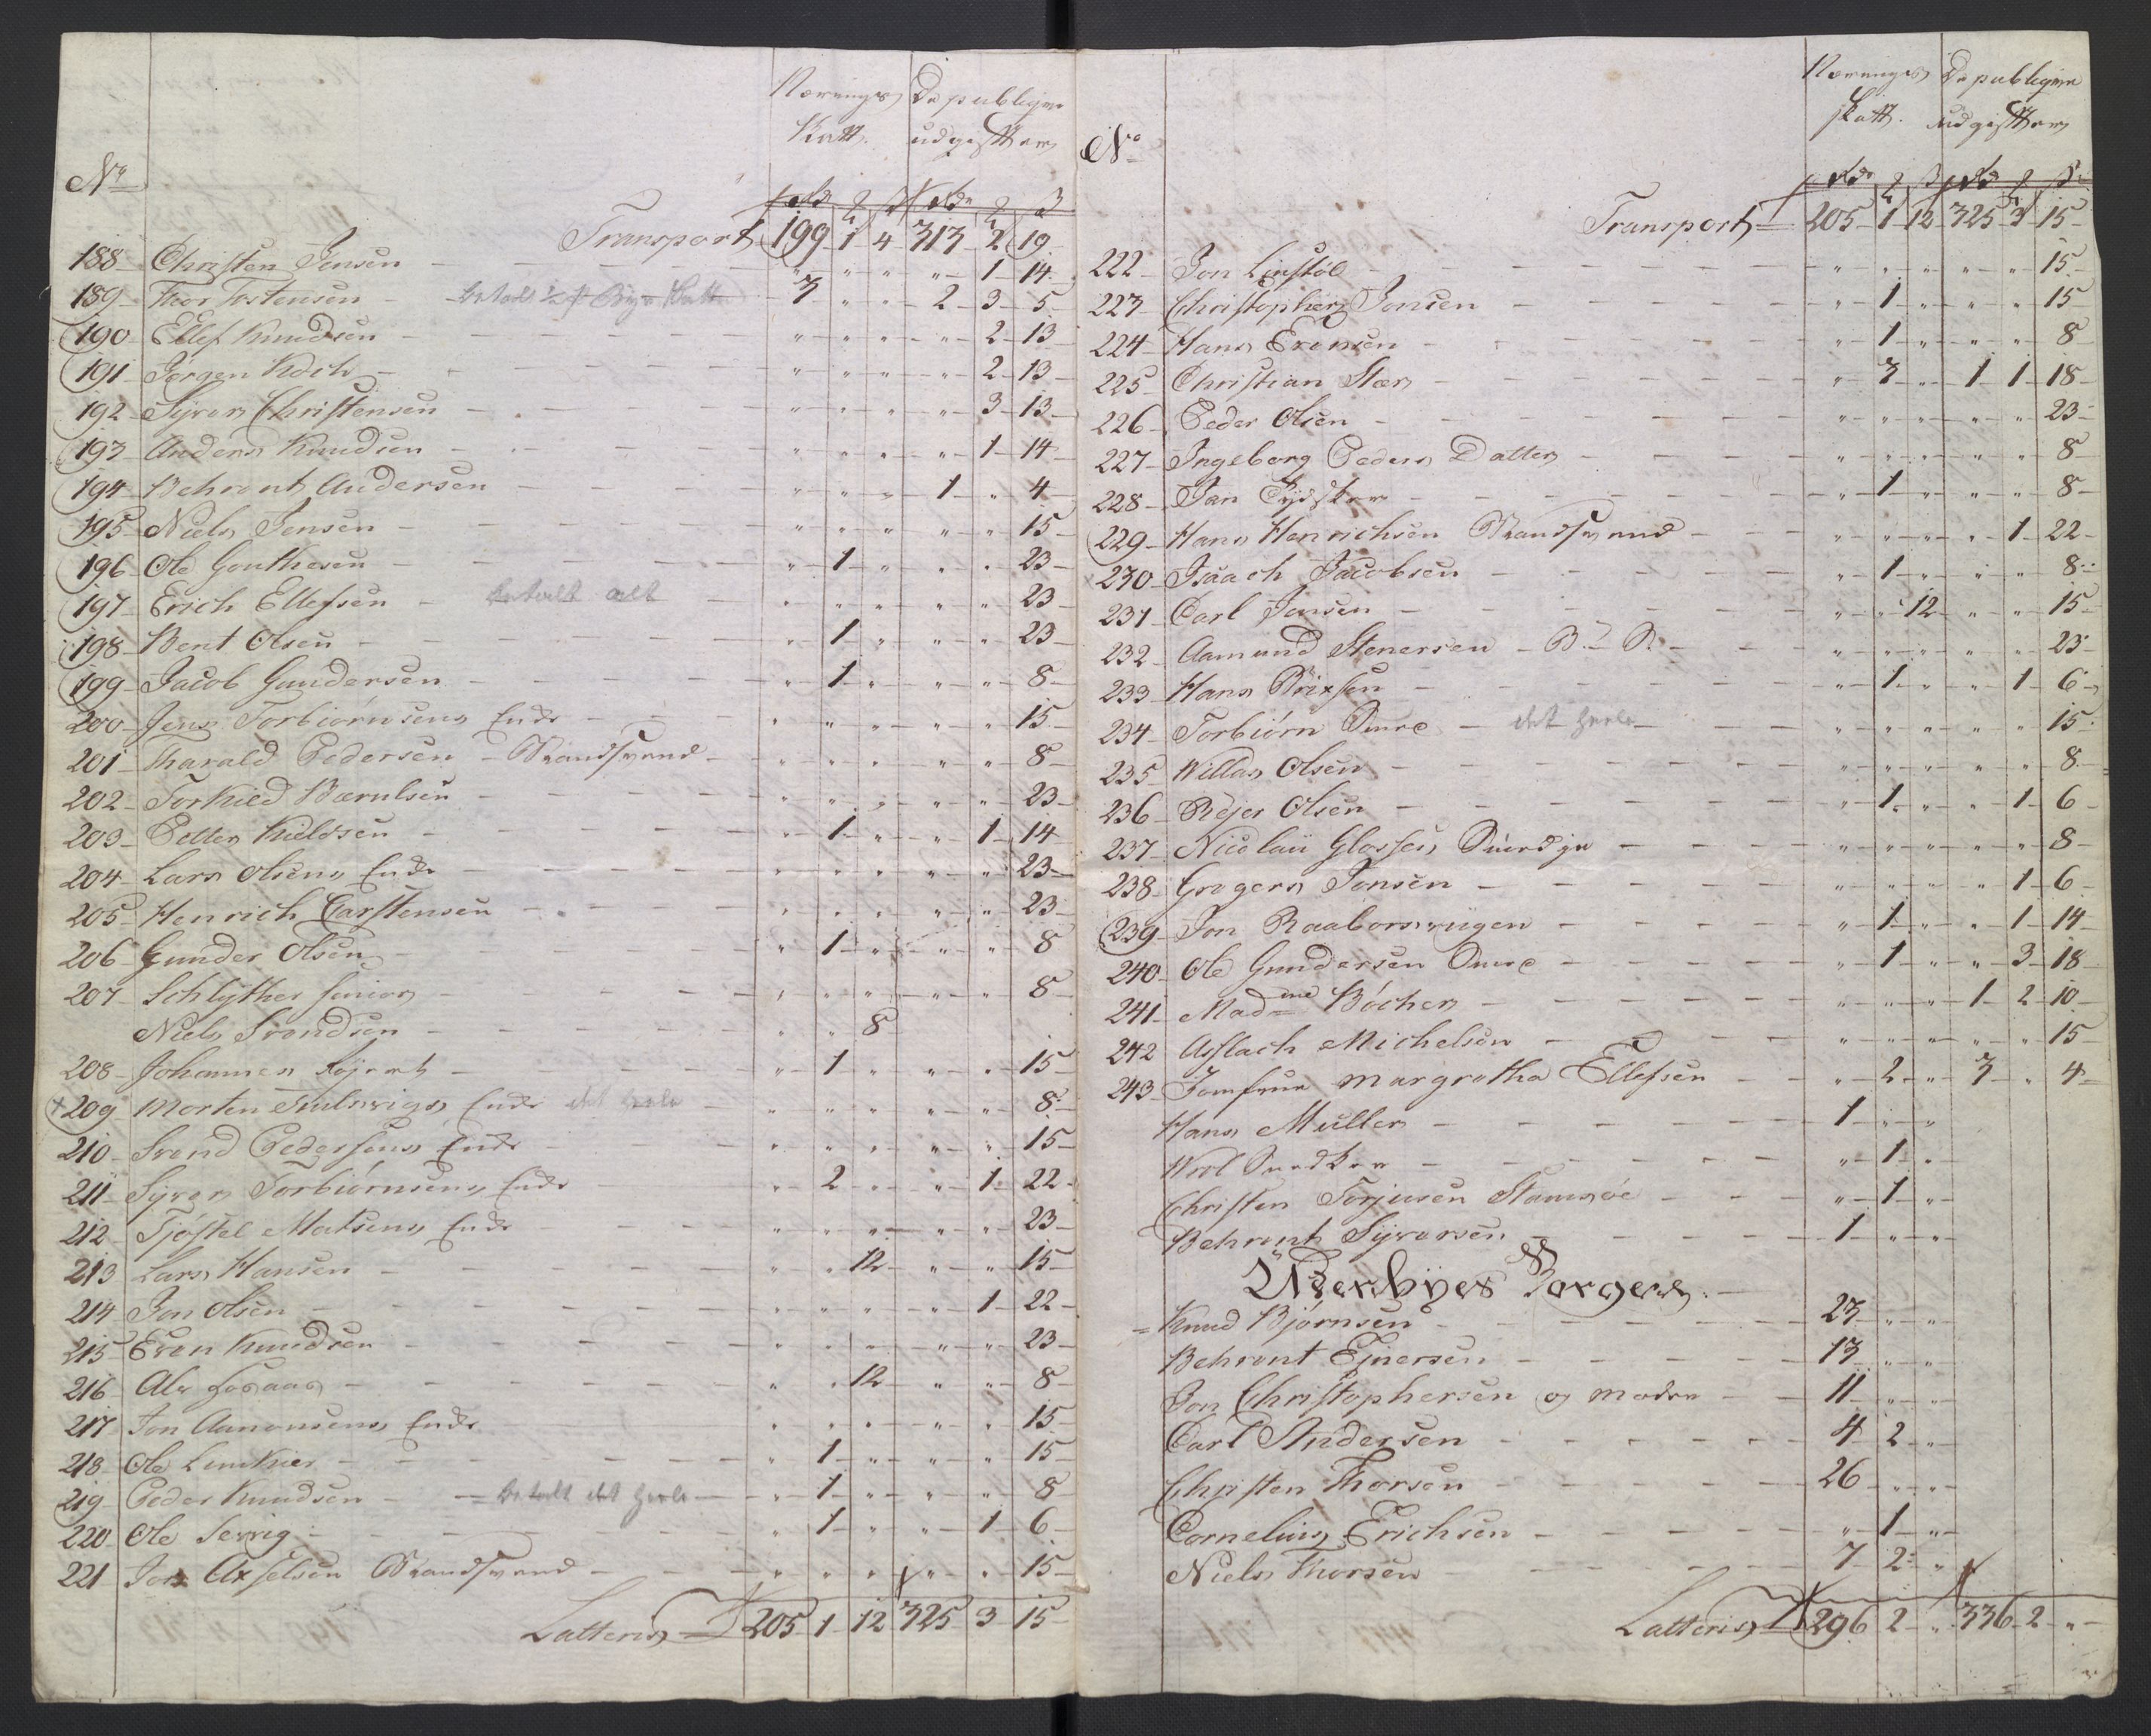 Nærings De publique
Skatt. udgifter
No
rdr 2 ß rdr 2 ß
Transport 199 1 4 313 2 19
188 Christen Jensen " " " " 1 14
189 Thor Tostensen betalt 3 " " 2 3 5
190 Ellef Knudsen " " " " 2 13
191 Jørgen Koch " " " " 2 13
192 Syver Christensen " " " " 3 13
193 Anders Knudsen " " " " 1 14
194 Behrent Andersen " " " 1 " 4
195 Niels Jensen " " " " " 15
196 Ole Gouthesen " 1 " " " 23
197 Erich Ellefsen betalt alt " " " " " 23
198 Bent Olsen " 1 " " " 23
199 Jacob Gundersen " 1 " " " 8
200 Jens Torbiørnsens Enke " " " " " 15
201 Harald Pedersen Brandsvend " " " " " 8
202 Torkild Bærulsen " " " " " 23
203 Petter Kieldsen " 1 " " 1 14
204 Lars Olsens Enke " " " " " 23
205 Henrich Carstensen " " " " " 23
206 Gunder Olsen " 1 " " " 8
207 Schlyther senior " " " " " 8
Niels Svendsen " " 8
208 Johannes Røyert " 1 " " " 15
209 Morten Enke det heele " " " " " 8
210 Svend Pedersens Enke " " " " " 15
211 Syver Torbiørnsens Enke " 2 " " 1 22
212 Tjøstel Matsens Enke " " " " " 23
213 Lars Hansen " " 12 " " 15
214 Jon Olsen " " " " 1 22
215 Even Knudsen " " " " " 23
216 Ale Fosaas " " 12 " " 8
217 Jon Aanonsens Enke " " " " " 15
218 Ole Lindkier " 1 " " " 15
219 Peder Knudsen betalt det heele " 1 " " " 8
220 Ole Servig " 1 " " 1 6
221 Jens Axselsen Brandsvend " " " " " 15
Latteris 205 1 12 325 3 15
Nærings De publique
skatt. udgifter
No
rdr 2 ß rdr 2 ß
Transport 205 1 12 325 3 15
222 Jon Linstøl " " " " " 15
223 Christopher Jonsen " 1 " " " 15
224 Hans Evensen " 1 " " " 8
225 Christian Stær " 3 " 1 1 18
226 Peder Olsen " " " " " 23
227 Ingeborg Peders Datter " " " " " 8
228 Jan Tydsker " 1 " " " 8
229 Hans Henrichsen Brandsvend " " " " 1 22
230 Isaach Jacobsen " 1 " " " 8
231 Carl Jensen " " 12 " " 15
232 Aamund Stenersen B. S. " " " " " 23
233 Hans Brixsen " 1 " " 1 6
234 Torbiørn Smed det heele " " " " " 15
235 Willas Olsen " " " " " 8
236 Rejer Olsen " 1 " " 1 6
237 Nicolaii Glasses " " " " " 8
238 Gregers Jonsen " " " " 1 6
239 Jon Raaborsvigen " 1 " " 1 14
240 Ole Gundersen Smed " 1 " " 3 18
241 Madme Bøcher " " " 1 2 10
242 Aslach Michelsen " " " " " 15
243 Jomfrue Margretha Ellefsen " 2 " 3 " 4
Hans Muller 1 " "
Wool Snedker " 1 "
Christen Torjusen Stamsøe " 1 "
Behrent Syversen 1 " "
Uderbyes Borgere.
Knud Bjørnsen 23 " "
Behrent Ejnersen 13 " "
Jon Christophersen og Moder 11 " "
Carl Andersen 4 2 "
Christen Thorsen 26 " "
Cornelius Erichsen " 1 "
Niels Thorsen 7 2 "
Latteris 296 2 " 336 2 "